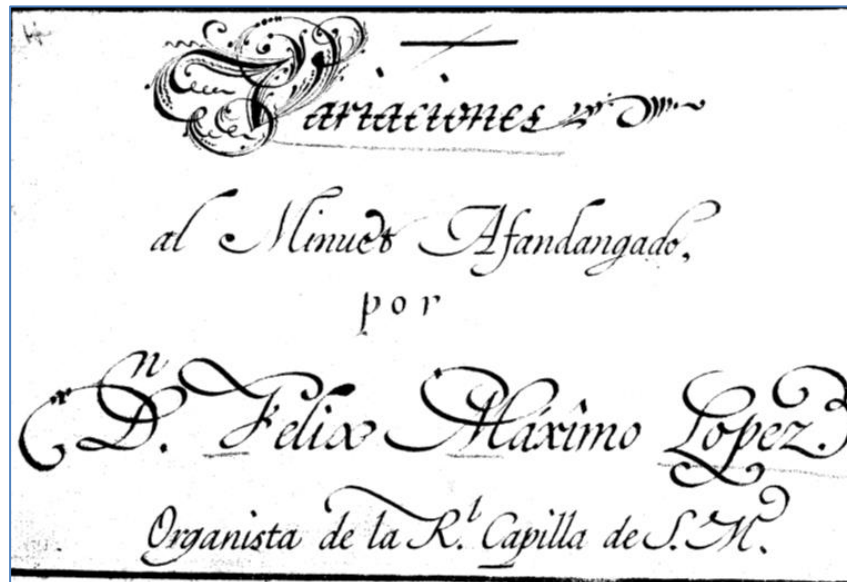 Variaciones
al Minuet Afandangado,
por
Dn. Felix Máximo Lopez.
Organista de la Rl. Capilla de S. M.